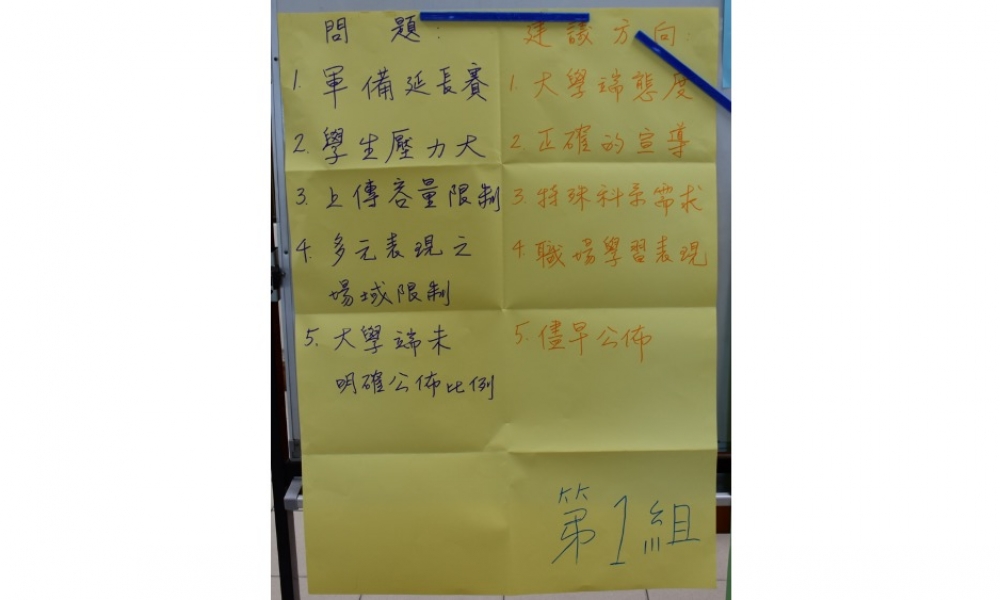 問題:
1. 軍備延長賽
2. 學生壓力大
3. 上傳容量限制
4. 多元表現之
場域限制
5. 大學端未
明確公佈比例
建議方向:
1. 大學端態度
2. 正確的宣導
3. 特殊科系需求
4. 職場學習表現
5. 儘早公佈
第1組